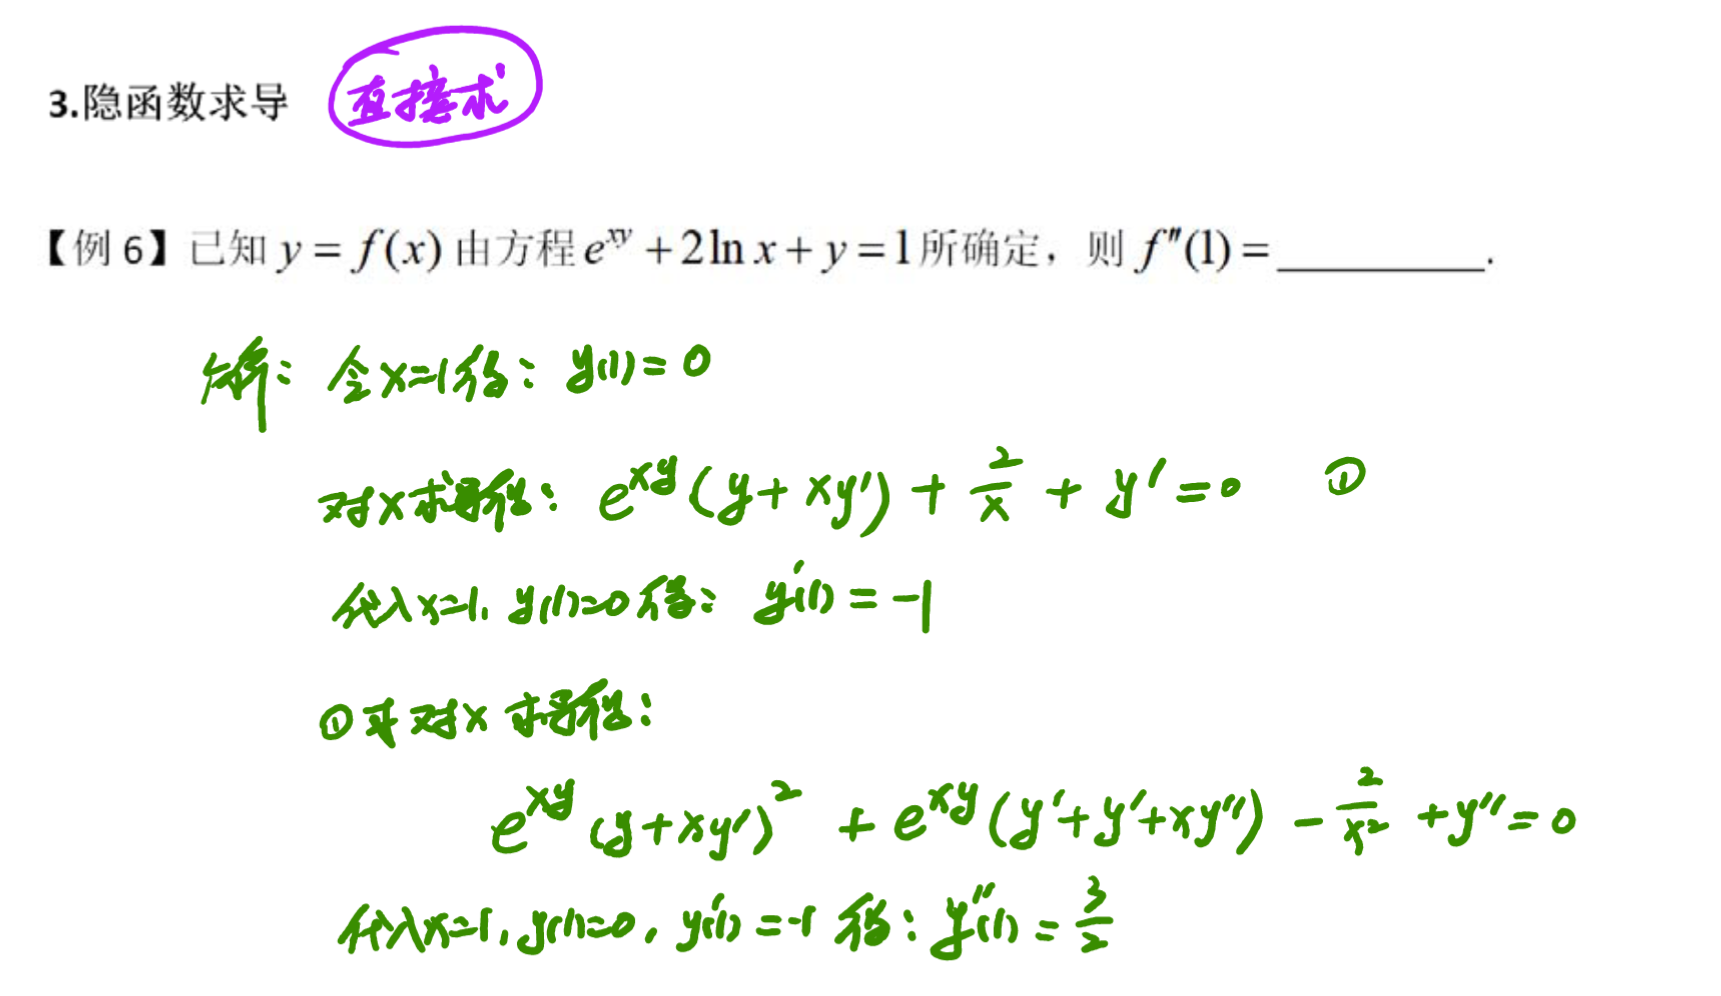 3.隐函数求导 直接求
【例 6】已知 y = f(x) 由方程 e^{xy} + 2ln x + y = 1 所确定，则 f″(1) = ________.
解：令x=1得：y(1)=0
对x求导得：e^{xy}(y+xy′)+\frac{2}{x}+y′=0 ①
代入x=1，y(1)=0得：y′(1)=-1
①式对x求导得：
e^{xy}(y+xy′)^2+e^{xy}(y′+y′+xy″)-\frac{2}{x^2}+y″=0
代入x=1，y(1)=0，y′(1)=-1得：y″(1)=\frac{3}{2}